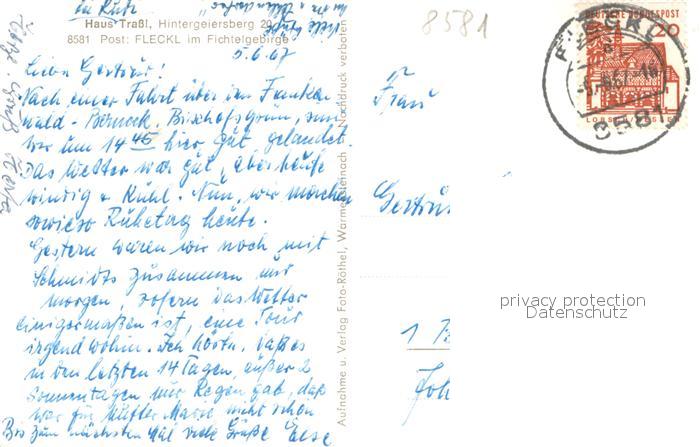 Haus Traßl, Hintergeiersberg 20
8581 Post: FLECKL im Fichtelgebirge
5.6.67
Liebe Gertrud!
Nach einer Fahrt über den Franken
wald - Berneck, Bischofsgrün, sind
wir um 14 45 hier gut gelandet.
Das Wetter war gut, aber heute
windig & kühl. Nun, wir machen
sowieso Ruhetag heute.
Gestern waren wir noch mit
Schmidts zusammen und
morgen, sofern das Wetter
einigermaßen ist, eine Tour
irgendwohin. Ich hörte, daß es
in den letzten 14 Tagen, außer 2
Sonnentagen nur Regen gab, das
war für Mutter nicht schön
Bis zum nächsten Mal viele Grüße Else
Aufnahme u. Verlag Foto-Röthel, Warmensteinach Nachdruck verboten
8581
DEUTSCHE BUNDESPOST
20
FLECKL
8581
Frau
Gertrud
1 B
Joh
privacy protection
Datenschutz